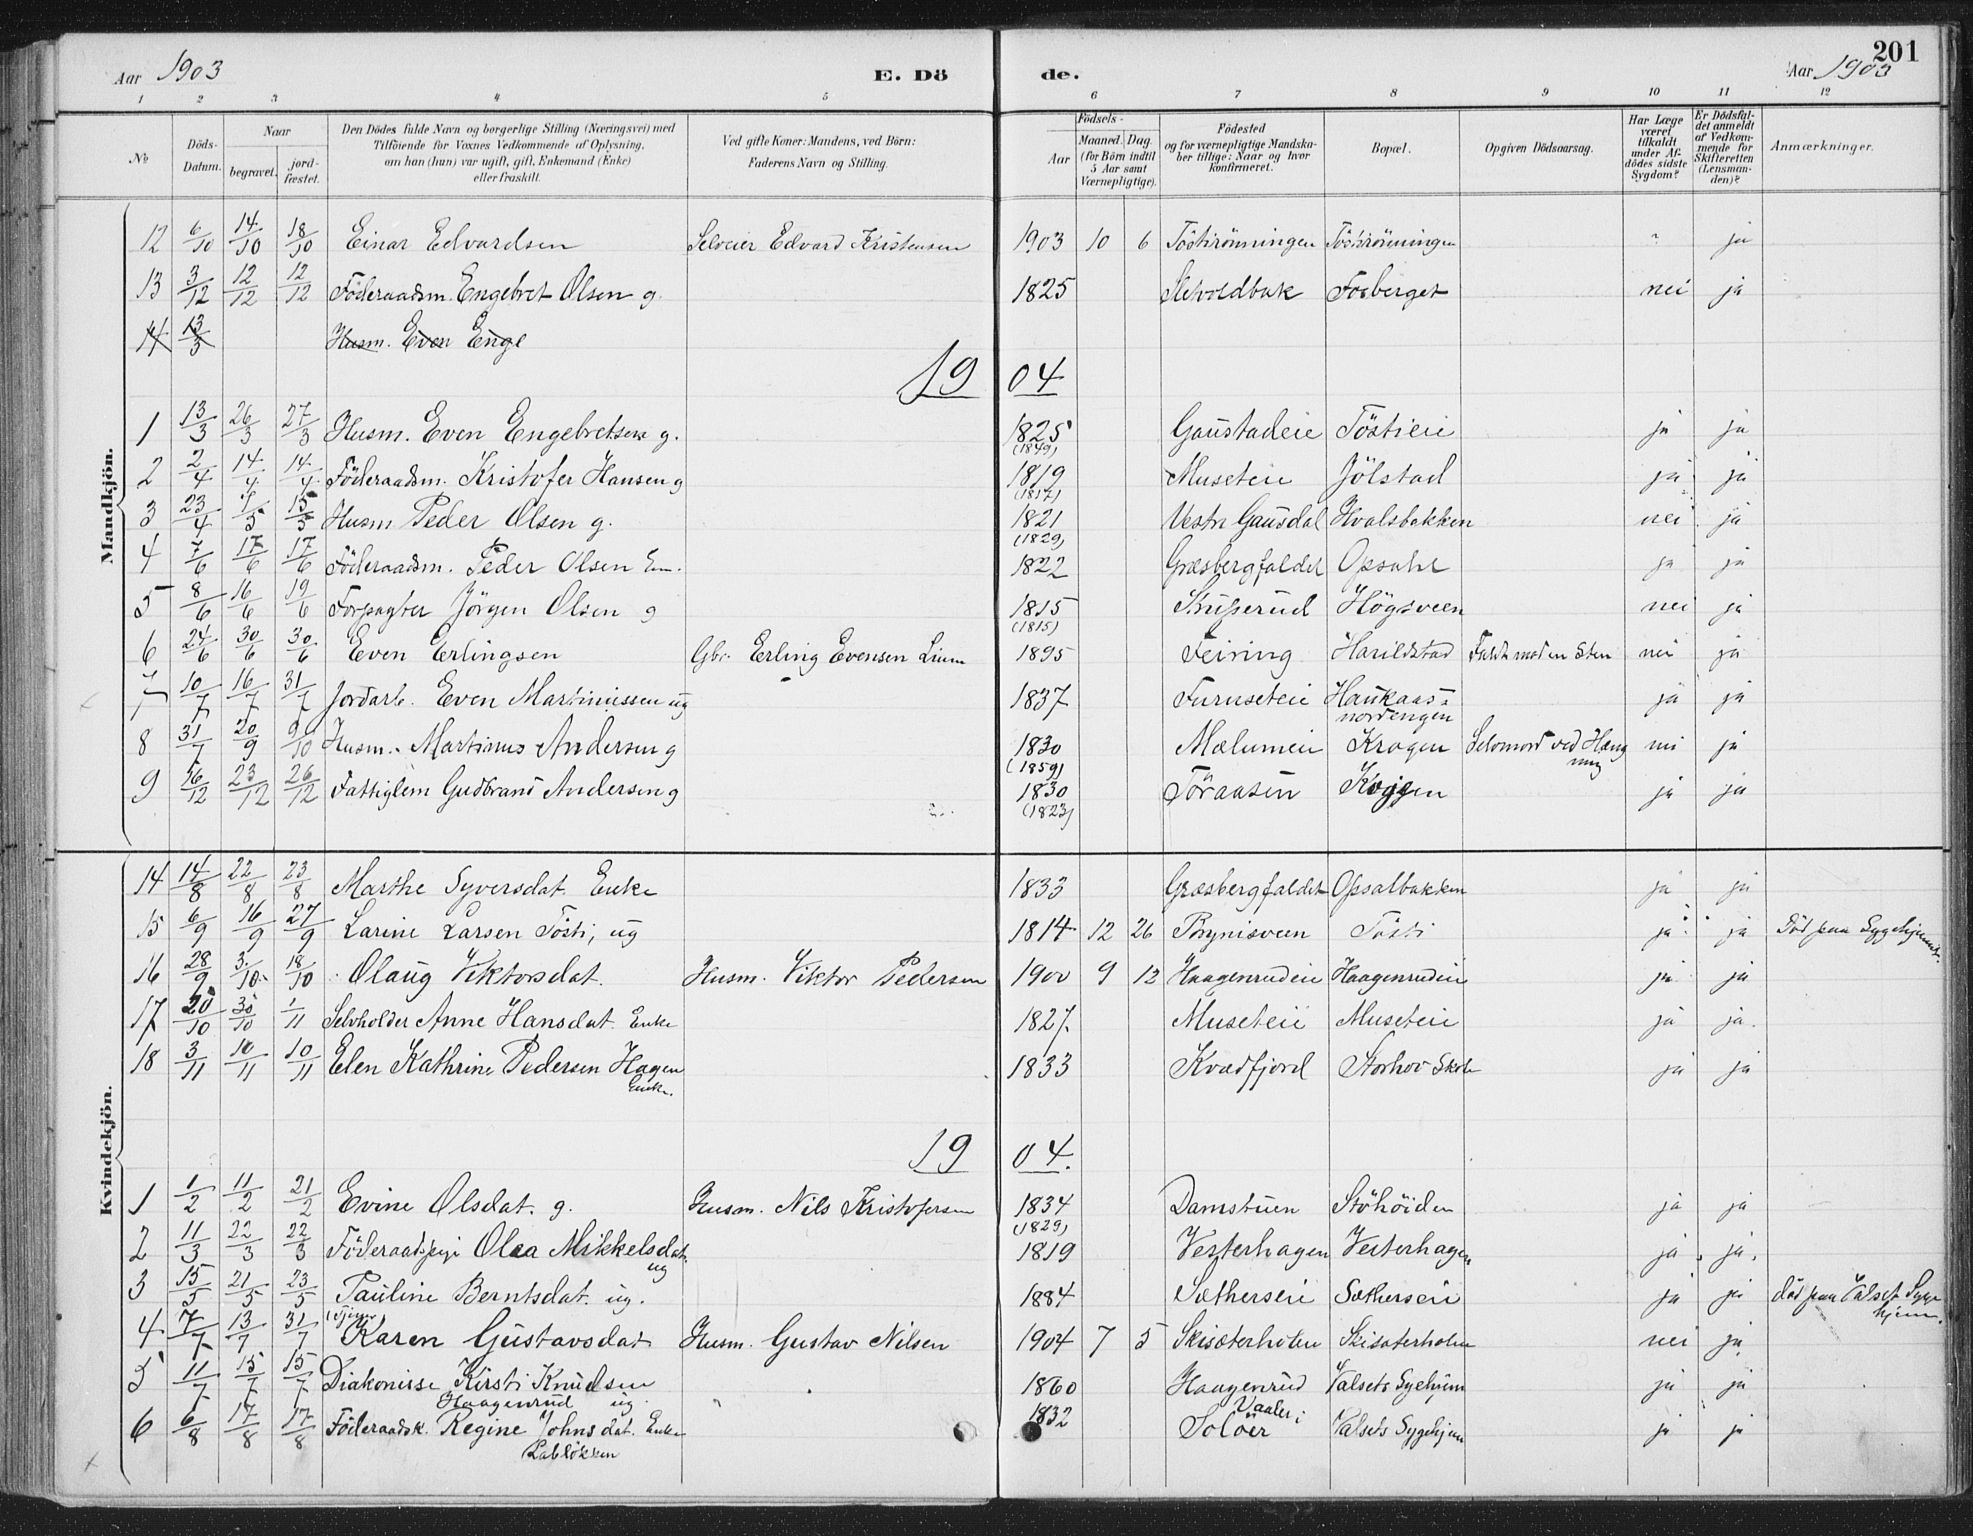 201
Aar 1903 E. Dö de. Aar 1903
1 2 3 4 5 6 7 8 9 10 11 12
No Döds-Datum. Naar begravet. jord-fæstet. Den Dödes fulde Navn og borgerlige Stilling (Næringsvei) med Tilföiende for Voxnes Vedkommende af Oplysning, om han (hun) var ugift, gift, Enkemand (Enke) eller fraskilt. Ved gifte Koner: Mandens, ved Börn: Faderens Navn og Stilling. Födsels- Aar Maaned. Dag. (for Börn indtil 5 Aar samt Værnepligtige). Födested og for værnepligtige Mandskaber tillige: Naar og hvor konfirmeret. Bopæl. Opgiven Dödsaarsag. Har Læge været tilkaldt under Afdödes sidste Sygdom? Er Dödsfaldet anmeldt af Vedkommende for Skifteretten (Lensmanden)? Anmærkninger.
Mandkjön.
12 6/10 14/10 18/10 Einar Edvardsen Selveier Edvard Kristensen 1903 10 6 Töstirönningen Töstirönningen ja
13 3/12 12/12 12/12 Föderaadsm. Engebret Olsen g. 1825 Sletvoldbak Fosberget nei ja
14 13/3 Husm. Even Enge
19 04
1 13/3 26/3 27/3 Husm. Even Engebretsen g. 1825 Gaustadeie Töstieie ja ja
(1849)
2 2/4 14/4 14/4 Föderaadsm. Kristofer Hansen g 1819 Museteie Jölstad ja ja
(1817)
3 23/4 1/5 15/5 Husm Peder Olsen g. 1821 Vestre Gausdal Hvalsbakken nei ja
(1829)
4 7/6 17/6 17/6 Föderaadsm. Peder Olsen Em. 1822 Græsbergfaldet Opsahl ja ja
5 8/6 16/6 19/6 Forpagter Jörgen Olsen g 1815 Högsveen nei ja
(1815)
6 24/6 30/6 30/6 Even Erlingsen Gbr. Erling Evensen Lium 1895 Feiring Harildstad Faldt mod en Sten nei ja
7 10/7 16/7 31/7 Jordarb. Even Martinussen ug 1837 Furuseteie Haukaas-nordengen ja ja
8 31/7 20/9 9/10 Husm. Martinus Andersen g 1830 Mælumeie Kragen Selvmord ved Hængning nei ja
(1859)
9 16/12 23/12 26/12 Fattiglem Gudbrand Andersen g 1830 Töraasen ja ja
(1823)
Kvindekjön.
14 14/8 22/8 23/8 Marthe Syversdat. Enke 1833 Græsbergfaldet Opsalbakken ja ja
15 6/9 16/9 27/9 Larine Larsen Tösti, ug 1814 12 26 Brynisveen Tösti ja ja Död paa Sygehjemmet.
16 28/9 3/10 18/10 Olaug Viktorsdat. Husm. Viktor Pedersen 1900 9 12 Haagenrudeie Haagenrudeie ja ja
17 20/10 30/10 1/11 Selvholder Anne Hansdat. Enke 1827 Museteie Museteie ja ja.
18 3/11 10/11 10/11 Elen Kathrine Pedersen Hagen Enke. 1833 Kvædfjord Storhov Skole ja ja
19 04.
1 1/2 11/2 21/2 Evine Olsdat. g. Husm. Nils Kristofersen 1834 Damstuen Stöhöiden ja ja
(1829)
2 11/3 22/3 22/3 Föderaadspige Olea Mikkelsdat. ug 1819 Vesterhagen Vesterhagen ja ja.
3 15/5 21/5 23/5 Pauline Berntsdat. ug. 1884 Sæthereie Sæthereie ja ja död paa Valset Sygehjem.
4 7/7 13/7 31/7 Karen Gustavsdat. Husm. Gustav Nilsen 1904 7 5 Skisæterholen Skisæterholen nei ja
5 11/7 15/7 15/7 Diakonisse Kirsti Knudsen Haagenrud ug. 1860 Haagenrud Valsets Sygehjem ja ja
6 6/8 17/8 17/8 Föderaadsk. Regine Johnsdat. Enke Labblökken 1832 Vaaler i Solöer Valsets Sygehjem ja ja